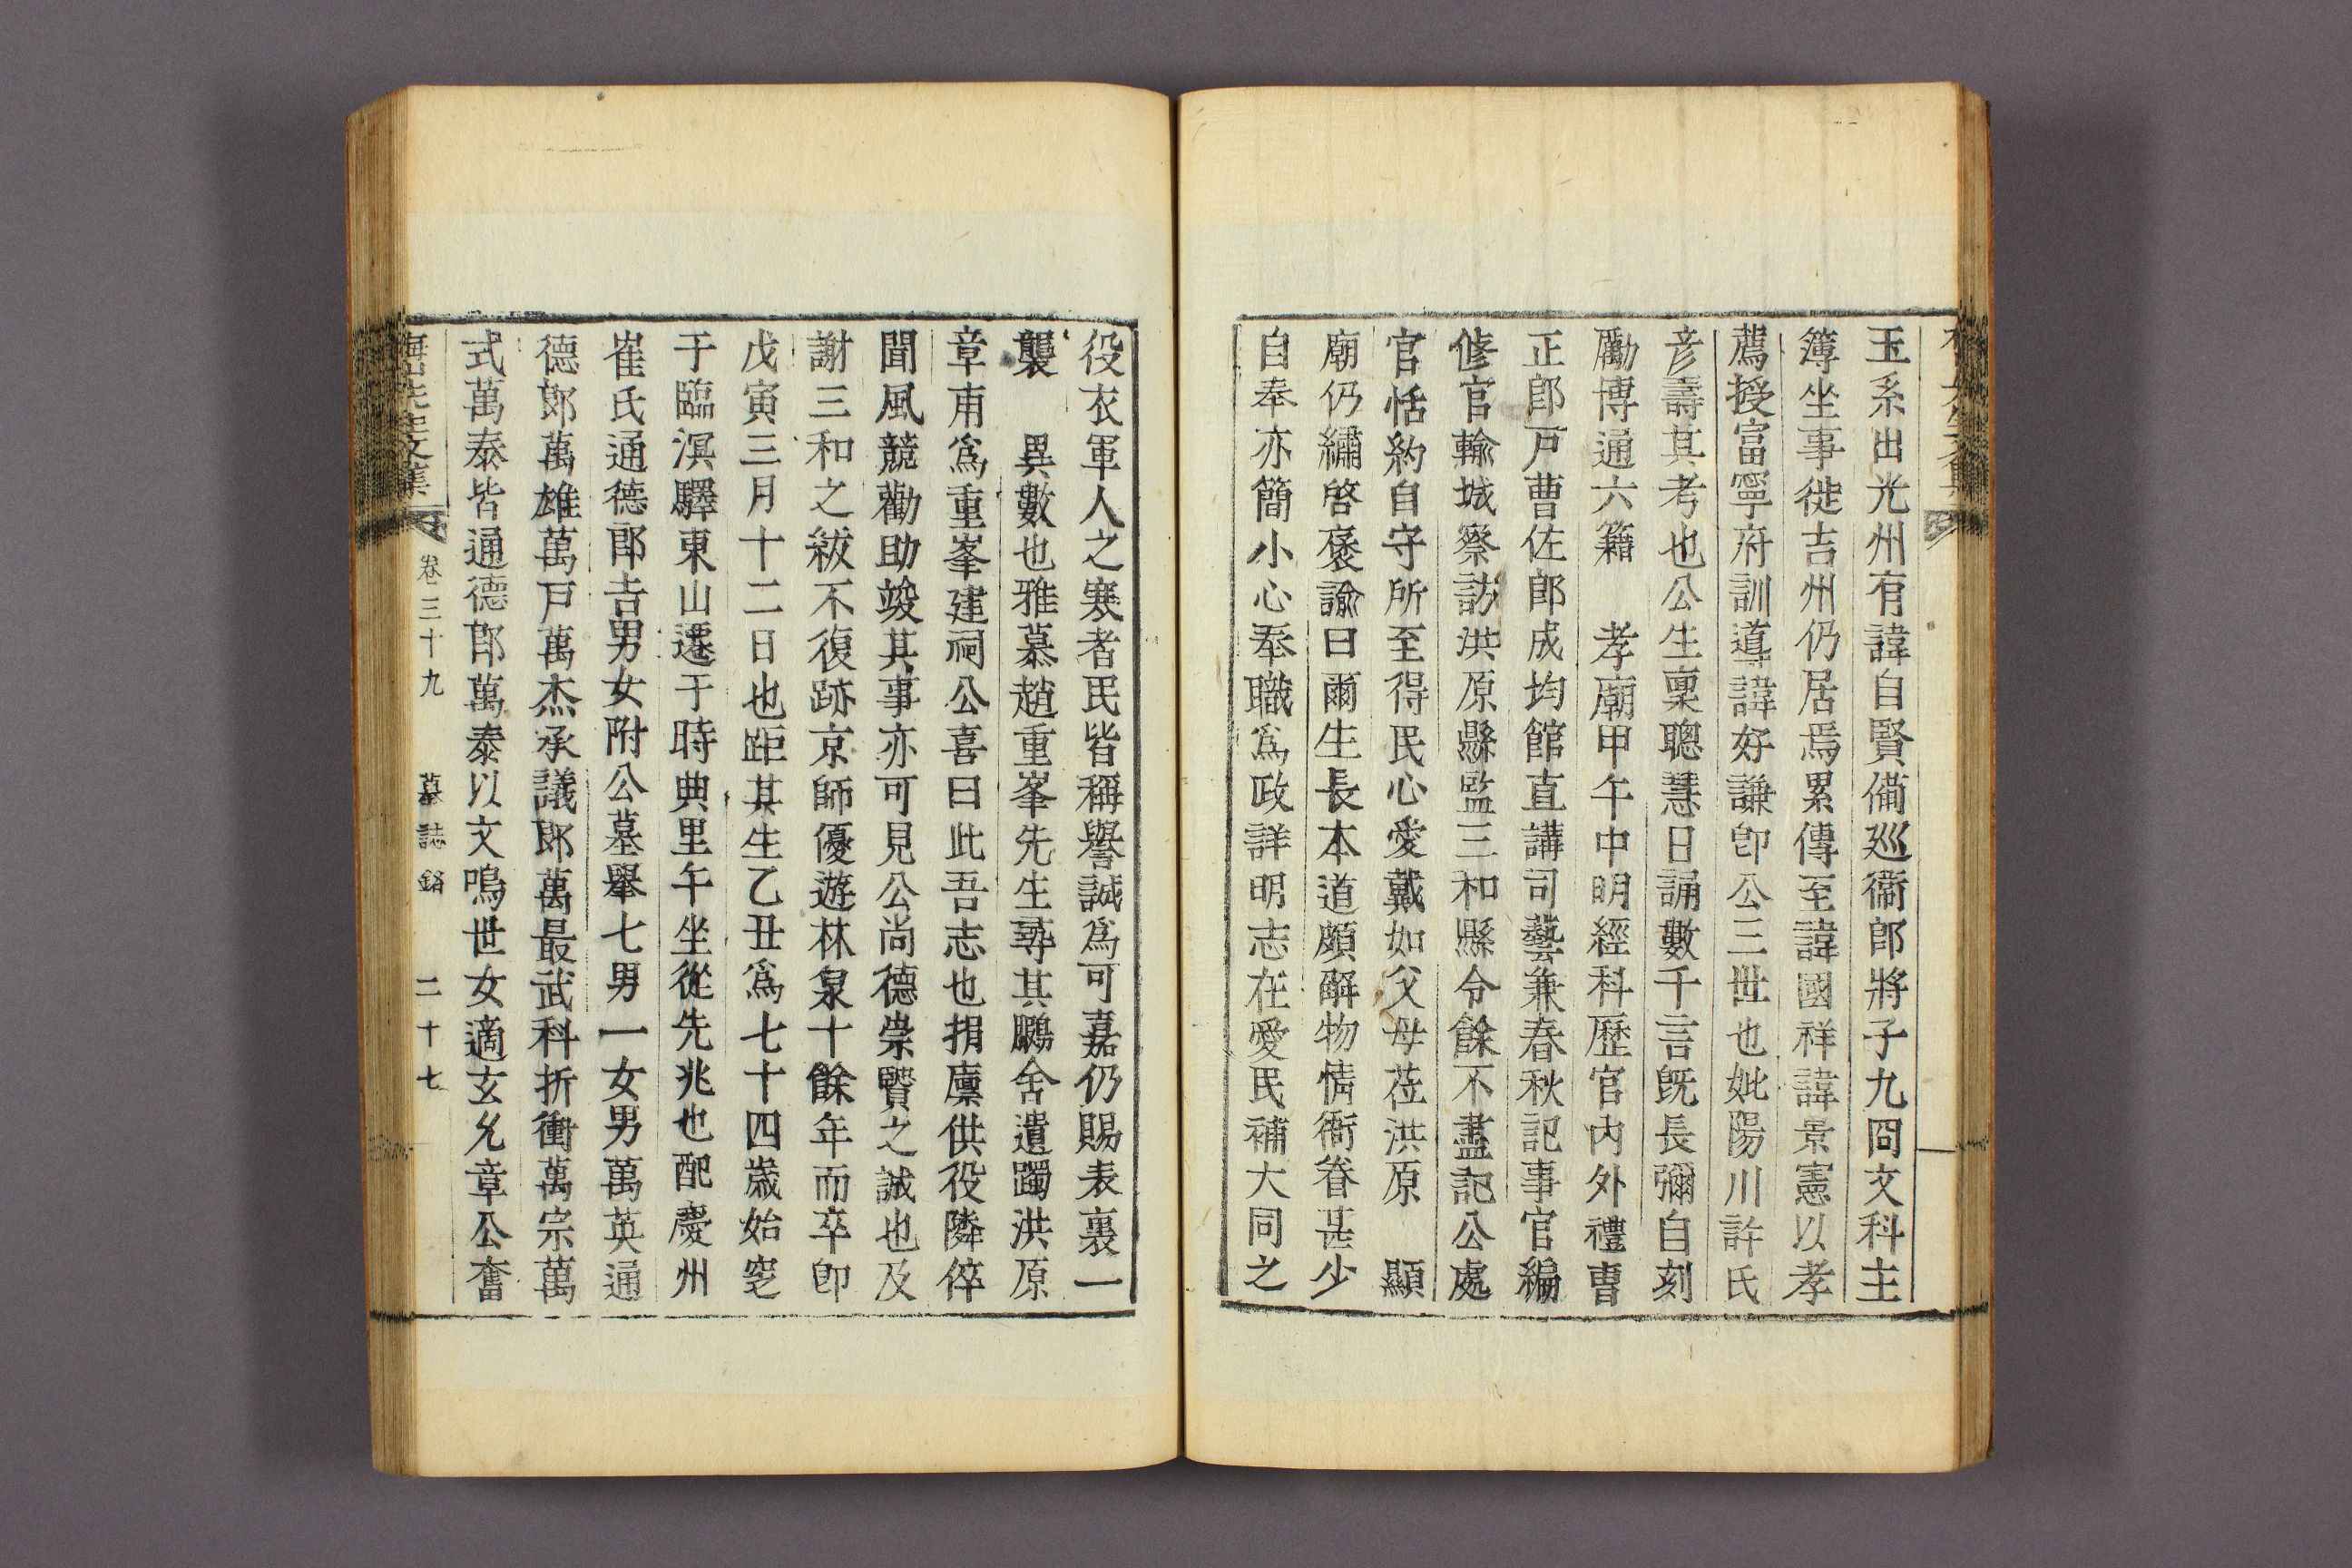 玉系出光州有諱自賢備巡衛郎將子九囧文科主
簿坐事徙吉州仍居焉累傳至諱國祥諱景憲以孝
薦授富寧府訓導諱好謙卽公三世也妣陽川許氏
彦壽其考也公生稟聰慧日誦數千言旣長彌自刻
勵博通六籍　孝廟甲午中明經科歷官內外禮曹
正郎戶曹佐郎成均館直講司藝兼春秋記事官編
修官輸城察訪洪原縣監三和縣令餘不盡記公處
官恬約自守所至得民心愛戴如父母莅洪原　顯
廟仍繡啓褒諭曰爾生長本道頗解物情衙眷甚少
自奉亦簡小心奉職爲政詳明志在愛民補大同之
役衣軍人之寒者民皆稱譽誠爲可嘉仍賜表裏一
襲　異數也雅慕趙重峯先生尋其鵩舍遺躅洪原
章甫爲重峯建祠公喜曰此吾志也捐廩供役隣倅
聞風競勸助竣其事亦可見公尚德崇賢之誠也及
謝三和之紱不復跡京師優遊林泉十餘年而卒卽
戊寅三月十二日也距其生乙丑爲七十四歲始窆
于臨溟驛東山遷于時典里午坐從先兆也配慶州
崔氏通德郎吉男女附公墓擧七男一女男萬英通
德郎萬雄萬戶萬杰承議郎萬最武科折衝萬宗萬
式萬泰皆通德郎萬泰以文鳴世女適玄允章公奮
梅山先生文集　卷三十九　墓誌銘　二十七